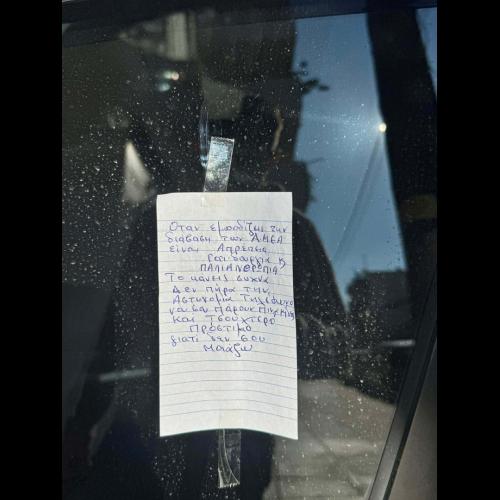 Όταν εμποδίζεις την
διάβαση των ΑΜΕΑ
είναι Απρέπεια
Γαϊδουριά κ
ΠΑΛΙΑΝΘΡΩΠΙΑ
Το κάνεις συχνά
Δεν πήρα την
Αστυνομία Τηλέφωνο
να σου πάρουν Πινακίδες
και Τσουχτερό
Πρόστιμο
γιατί δεν σου
Μοιάζω